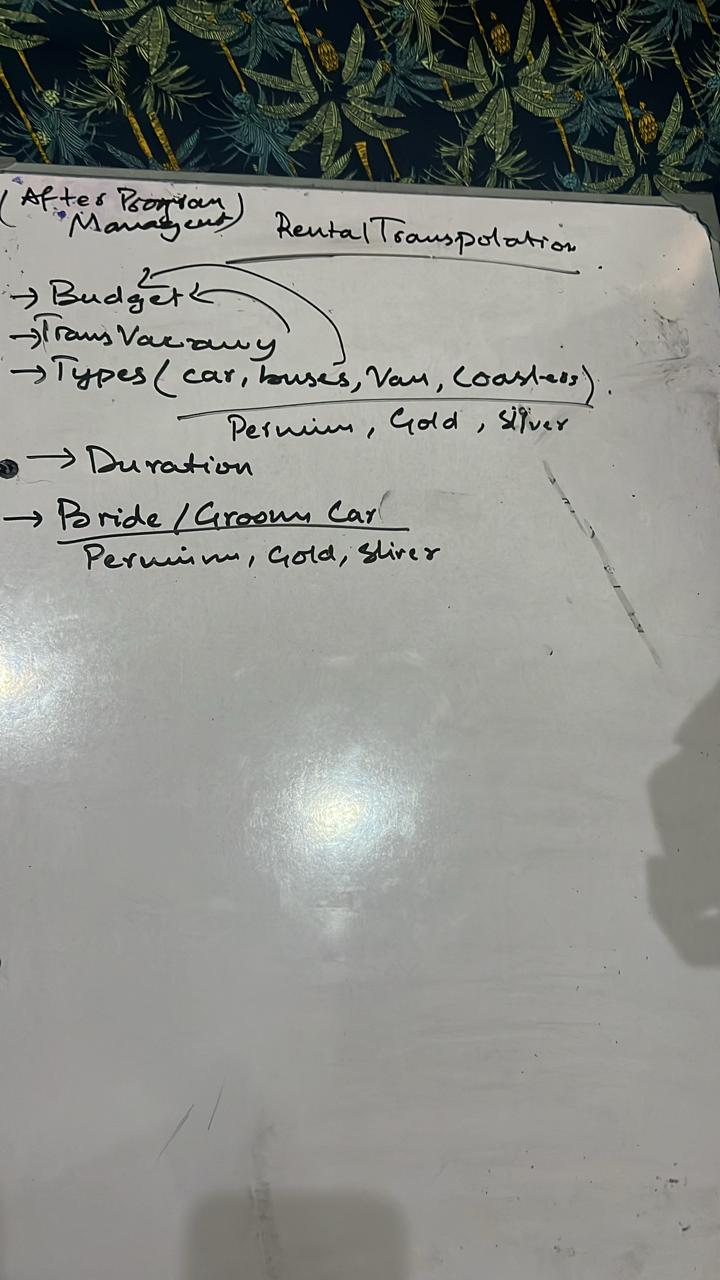 (After Program
Managent)
Rental Transpolation
→ Budget
→ Trans Vacancy
→ Types ( car, buses, Van, Coasters).
Permium, Gold, Sliver
→ Duration
→ Bride / Groom Car
Permium, Gold, Sliver